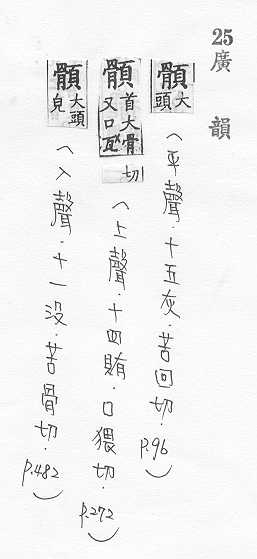 25 廣韻
顝大頭(平聲.十五灰.苦回切.p.96)
顝首大骨又口瓦切(上聲.十四賄.口猥切.p.272)
顝大頭皃(入聲.十一没.苦骨切.p.482)